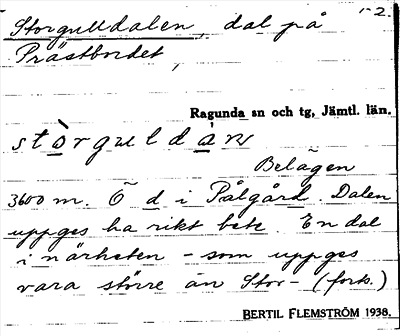 Storgulldalen, dal på 1-2.
Prästbordet,
Ragunda sn och tg, Jämtl. län.
stòrguldàn
Belägen
3600 m. Ö d i Pålgård. Dalen
uppges ha rikt bete. En dal
i närheten - som uppges
vara större än Stor- (forts.)
BERTIL FLEMSTRÖM 1938.